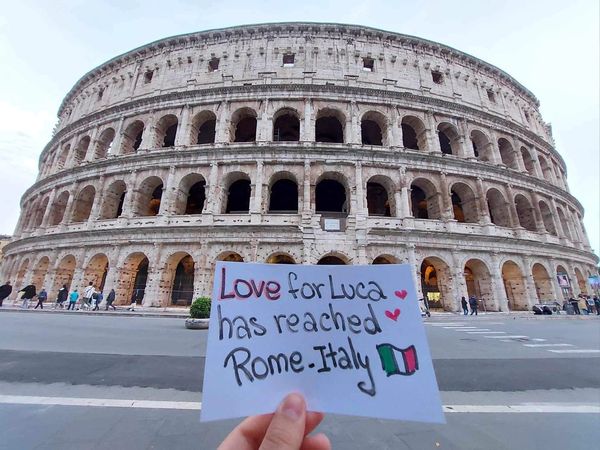 Love for Luca
has reached
Rome-Italy